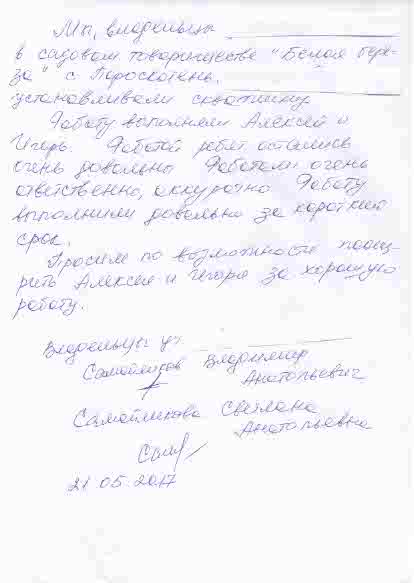 Мы, владельцы
в садовом товариществе "Белая бере-
за" с. Пороскотень.
устанавливали скважину
Работу выполняли Алексей и
Игорь. Работой ребят остались
очень довольны Работали очень
ответственно, аккуратно Работу
выполнили довольно за короткий
срок.
Просим по возможности поощ-
рить Алексея и Игоря за хорошую
работу.
Владельцы уч.
Самойликов Владимир
Анатольевич
Самойликова Светлана
Анатольевна
21 05 2017